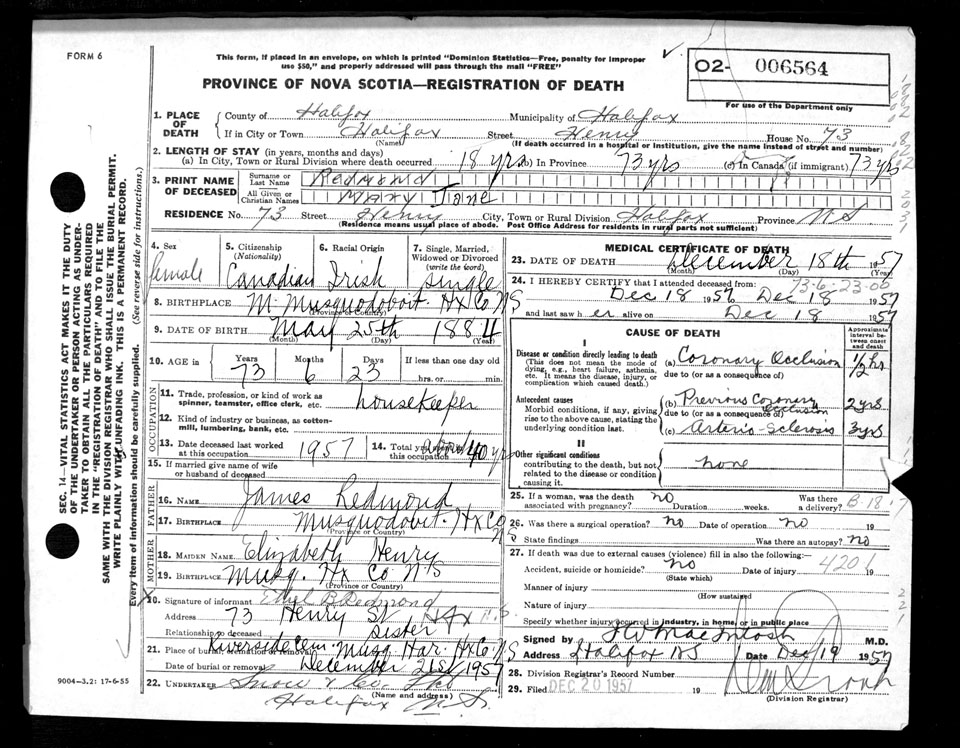 FORM 6
This form, if placed in an envelope, on which is printed "Dominion Statistics—Free, penalty for improper
use $50," and properly addressed will pass through the mail "FREE"
02- 006564
For use of the Department only
PROVINCE OF NOVA SCOTIA—REGISTRATION OF DEATH
1. PLACE OF DEATH County of Halifax Municipality of Halifax
If in City or Town Halifax (Name) Street Henry House No. 73
(If death occurred in a hospital or institution, give the name instead of street and number)
2. LENGTH OF STAY (in years, months and days)
(a) In City, Town or Rural Division where death occurred 18 yrs (b) In Province 73 yrs (c) In Canada (if immigrant) 73 yrs
3. PRINT NAME OF DECEASED Surname or Last Name Redmond
All Given or Christian Names Mary Jane
RESIDENCE No. 73 Street Henry City, Town or Rural Division Halifax Province N S
(Residence means usual place of abode. Post Office Address for residents in rural parts not sufficient)
4. Sex female
5. Citizenship (Nationality) Canadian
6. Racial Origin Irish
7. Single, Married, Widowed or Divorced (write the word) single
8. BIRTHPLACE M. Musquodoboit Hx Co NS
(Province or Country)
9. DATE OF BIRTH May 25th 1884
(Month) (Day) (Year)
10. AGE in Years 73 Months 6 Days 23 If less than one day old hrs. or min.
OCCUPATION
11. Trade, profession, or kind of work as spinner, teamster, office clerk, etc. housekeeper
12. Kind of industry or business, as cotten-mill, lumbering, bank, etc.
13. Date deceased last worked at this occupation 1957
14. Total years in this occupation 40 yrs
15. If married give name of wife or husband of deceased
FATHER
16. Name James Redmond
17. Birthplace Musquodoboit Hx Co NS
(Province or Country)
MOTHER
18. MAIDEN NAME Elizabeth Henry
19. BIRTHPLACE Musq. Hx Co N S
(Province or Country)
20. Signature of informant Ethel B. Redmond
Address 73 Henry St Hfx N.S.
Relationship to deceased sister
21. Place of burial, cremation or removal Riverside Cem. Musq. Har. Hx Co NS
Date of burial or removal December 21st 1957
22. UNDERTAKER Snow & Co.
(Name and address)
Halifax N S.
MEDICAL CERTIFICATE OF DEATH
23. DATE OF DEATH December 18th 1957
(Month) (Day) (Year)
73-6-23-00
24. I HEREBY CERTIFY that I attended deceased from:
Dec 18 1957 Dec 18 1957
and last saw her alive on Dec 18 1957
CAUSE OF DEATH
Approximate interval between onset and death
I
Disease or condition directly leading to death
(This does not mean the mode of dying, e.g., heart failure, asthenia, etc. It means the disease, injury, or complication which caused death.)
(a) Coronary Occlusion 1/2 hr
due to (or as a consequence of)
Antecedent causes
Morbid conditions, if any, giving rise to the above cause, stating the underlying condition last.
(b) Previous Coronary Occlusion 2 yrs
due to (or as a consequence of)
(c) Arterio-Sclerosis 3 yrs
II
Other significant conditions
contributing to the death, but not related to the disease or condition causing it.
none
25. If a woman, was the death associated with pregnancy? no Duration weeks. Was there a delivery?
B-18
26. Was there a surgical operation? no Date of operation no 19
State findings Was there an autopsy? no
27. If death was due to external causes (violence) fill in also the following:—
Accident, suicide or homicide? no Date of injury 19
(State which)
4201
Manner of injury
(How sustained
Nature of injury
Specify whether injury occurred in industry, in home, or in public place
Signed by MacIntosh M.D.
Address Halifax NS Date Dec 19 1957
28. Division Registrar's Record Number
29. Filed DEC 20 1957 19
(Division Registrar)
SEC. 14—VITAL STATISTICS ACT MAKES IT THE DUTY
OF THE UNDERTAKER OR PERSON ACTING AS UNDER-
TAKER TO OBTAIN ALL THE PARTICULARS REQUIRED
IN THE "REGISTRATION OF DEATH" AND TO FILE THE
SAME WITH THE DIVISION REGISTRAR WHO SHALL ISSUE THE BURIAL PERMIT.
WRITE PLAINLY WITH UNFADING INK. THIS IS A PERMANENT RECORD.
Every item of information should be carefully supplied. (See reverse side for instructions.)
9004—3.2: 17-6-55